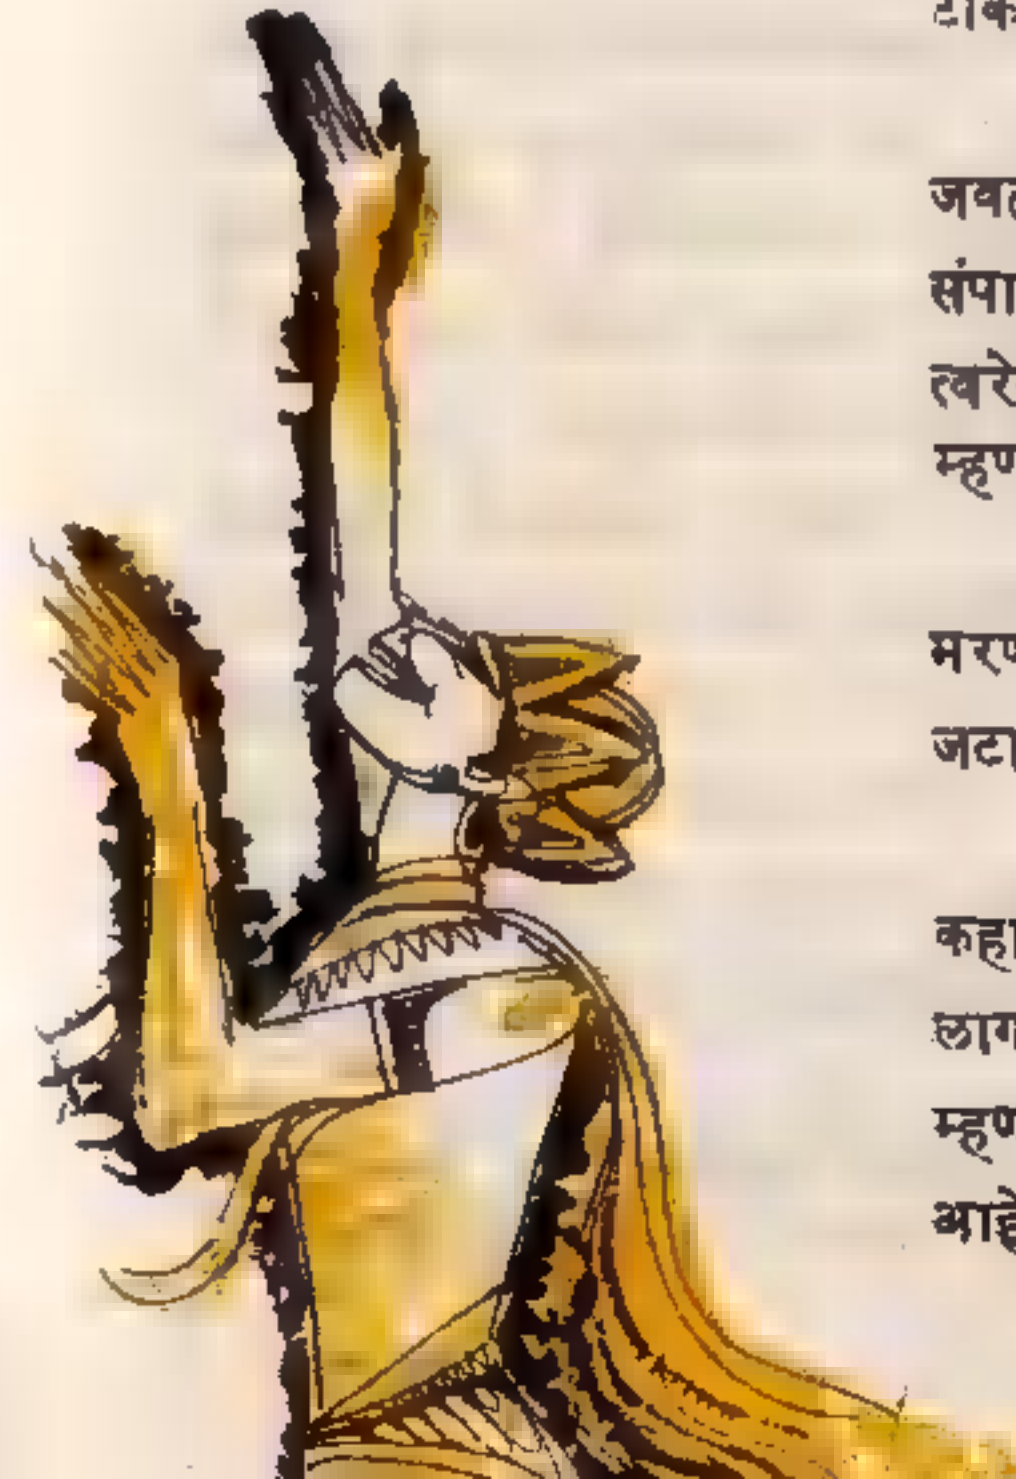 टाक
जव
संपा
त्वरे
म्हण
मरण
जटा
कहा
लाग
म्हण
आहे